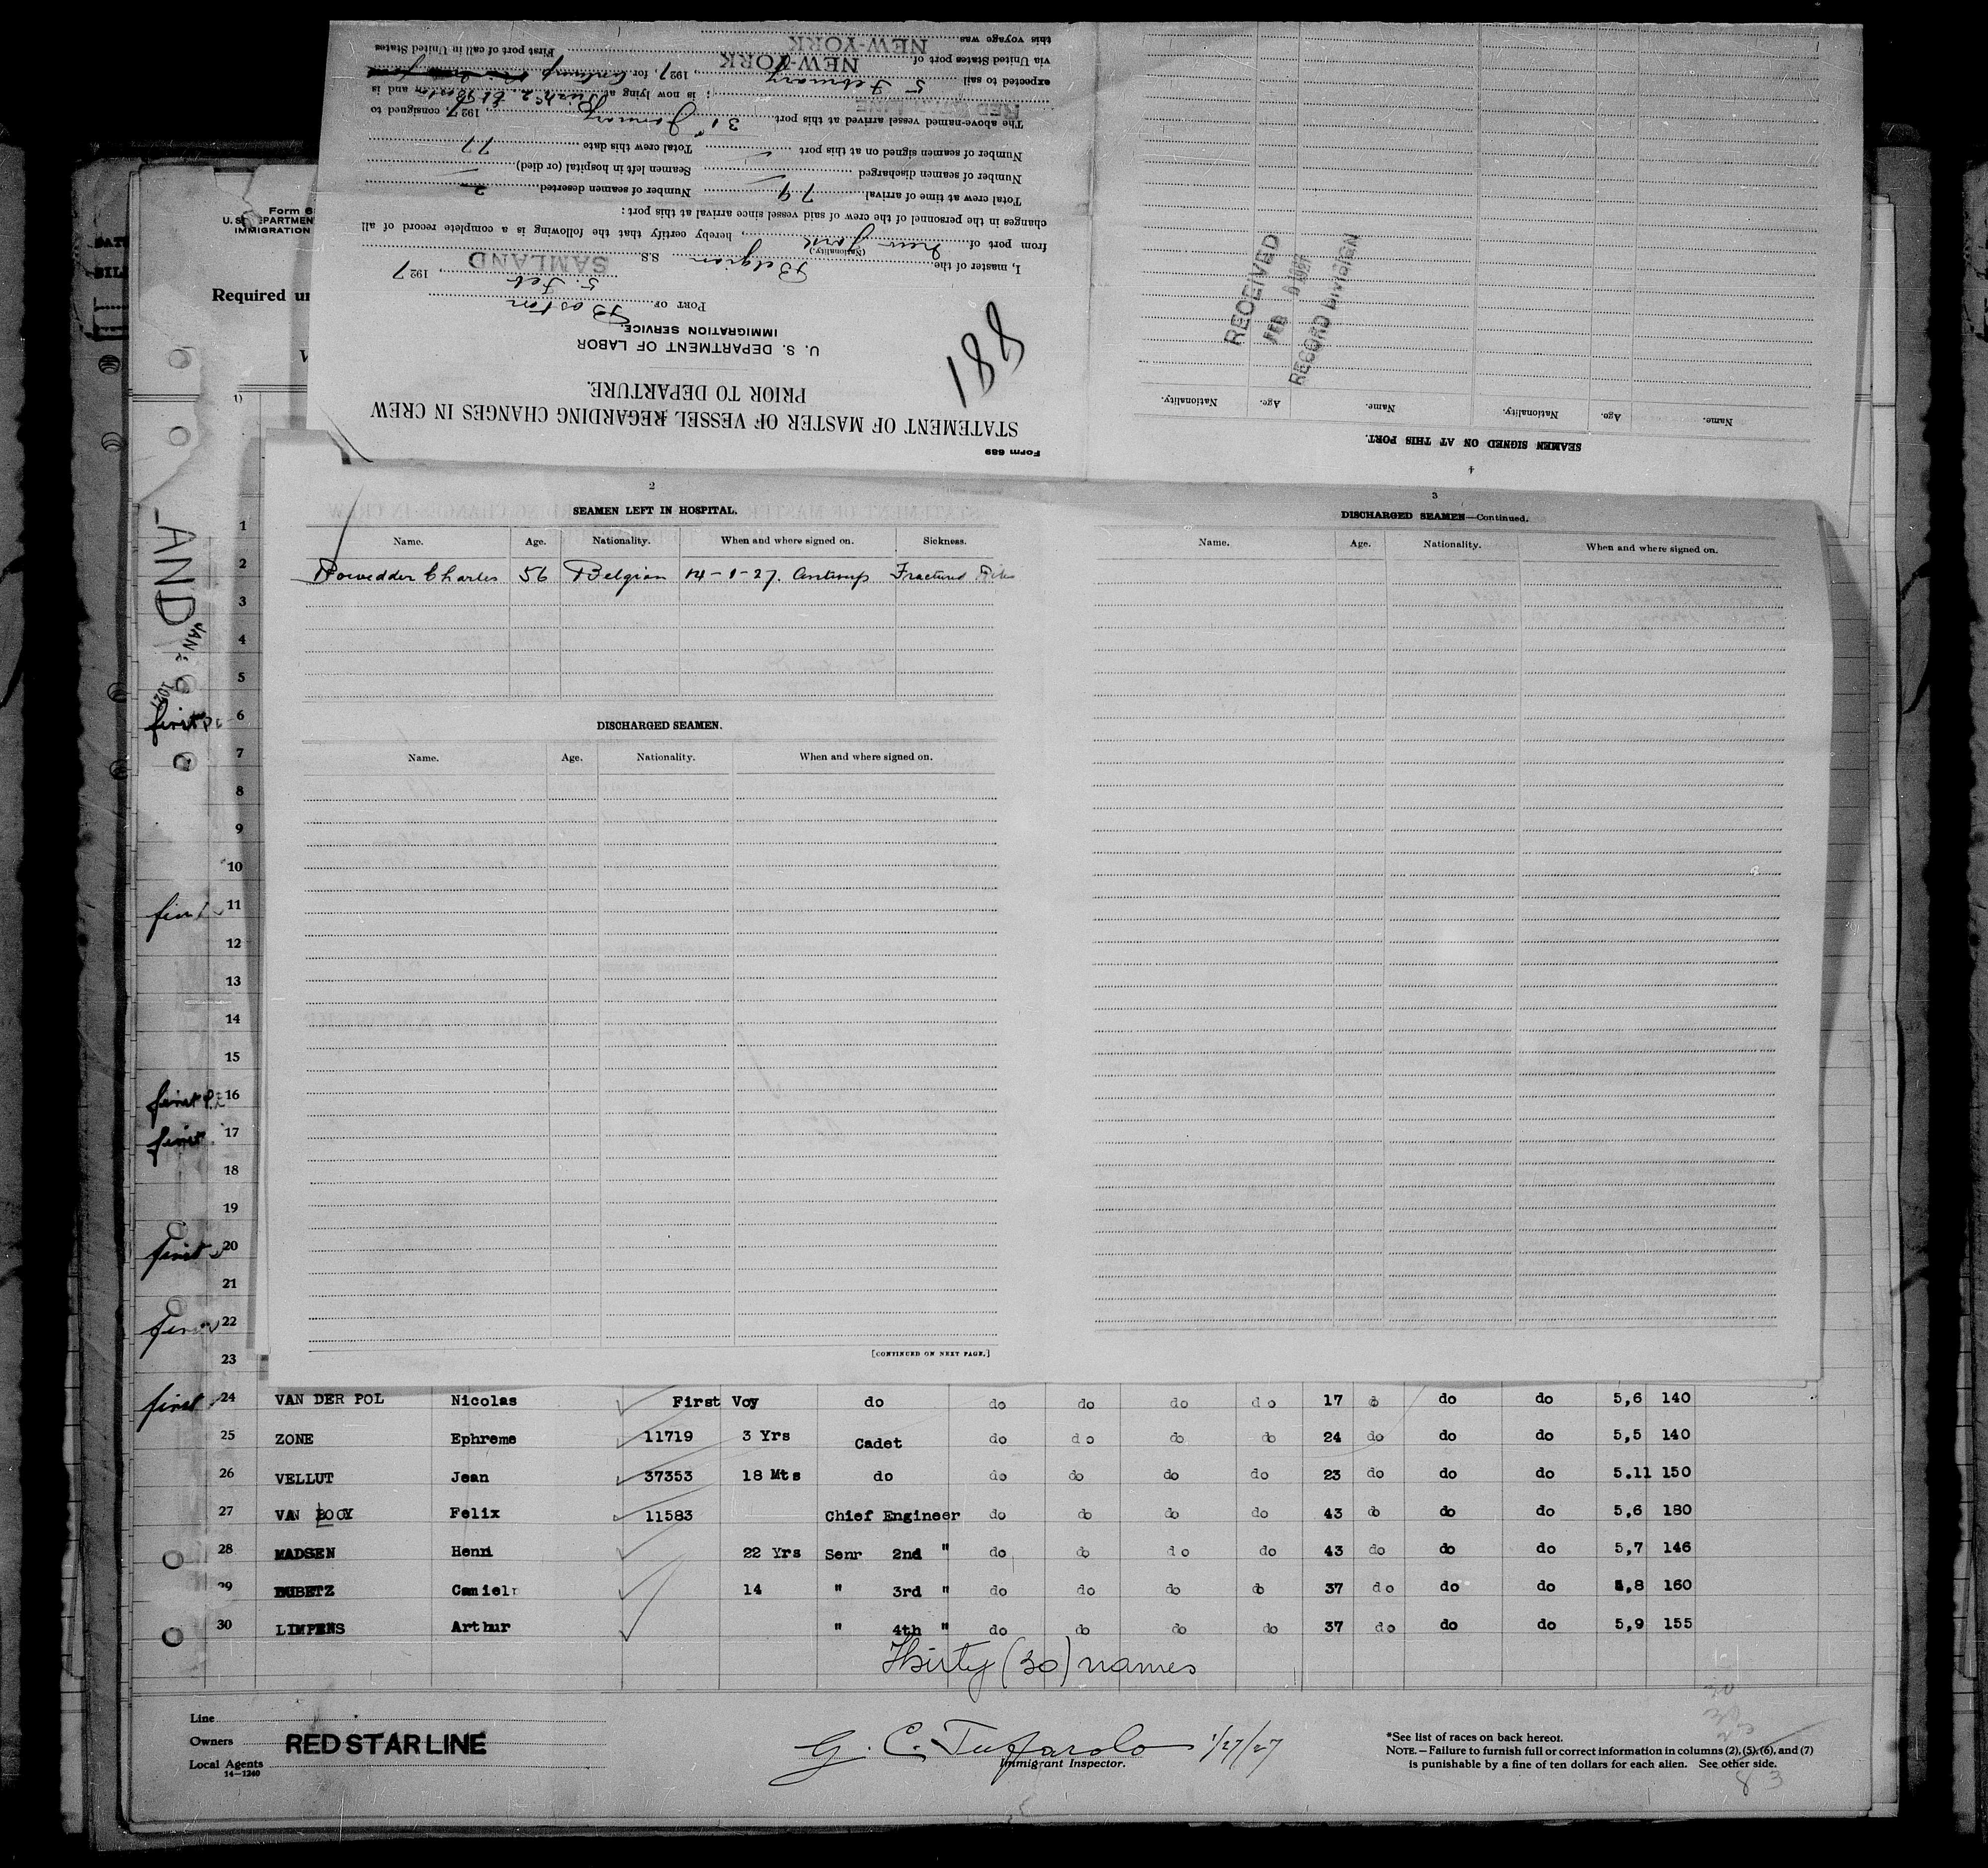 Form 689
STATEMENT OF MASTER OF VESSEL REGARDING CHANGES IN CREW
PRIOR TO DEPARTURE.
188
U. S. DEPARTMENT OF LABOR
IMMIGRATION SERVICE.
PORT OF Boston
5 Feb, 1927
I, master of the Belgian S.S. SAMLAND
(Nationality.)
from port of New York, hereby certify that the following is a complete record of all
changes in the personnel of the crew of said vessel since arrival at this port:
Total crew at time of arrival 79 Number of seamen deserted 2
Number of seamen discharged Seamen left in hospital (or died)
Number of seamen signed on at this port Total crew this date 77
The above-named vessel arrived at this port 31 January, 1927, consigned to
RED STAR LINE; is now lying at and is
expected to sail 5 February, 1927, for Antwerp
via United States port of NEW-YORK First port of call in United States
this voyage was NEW-YORK
4
SEAMEN SIGNED ON AT THIS PORT.
Name. Age. Nationality. Name. Age. Nationality.
RECEIVED
FEB 1927
RECORD DIVISION
Form 6
U. S. DEPARTMENT
IMMIGRATION
Required un
LAND
JAN
first
2
SEAMEN LEFT IN HOSPITAL.
Name. Age. Nationality. When and where signed on. Sickness.
Charles 56 Belgian 14-1-27. Antwerp Fractured Ribs
DISCHARGED SEAMEN.
Name. Age. Nationality. When and where signed on.
[CONTINUED ON NEXT PAGE.]
3
DISCHARGED SEAMEN—Continued.
Name. Age. Nationality. When and where signed on.
1
2
3
4
5
first 6
7
8
9
10
11
12
13
14
15
first 16
first 17
18
19
first 20
21
22
23
first 24 VAN DER POL Nicolas First Voy do do do do do 17 do do do 5,6 140
25 ZONE Ephreme 11719 3 Yrs Cadet do do do do 24 do do do 5,5 140
26 VELLUT Jean 37353 18 Mts do do do do do 23 do do do 5.11 150
27 VAN BOOY Felix 11583 Chief Engineer do do do do 43 do do do 5,6 180
28 MADSEN Henri 22 Yrs Senr 2nd " do do do do 43 do do do 5,7 146
29 DUBETZ Camiel 14 " 3rd " do do do do 37 do do do 5,8 160
30 LIMPENS Arthur " 4th " do do do do 37 do do do 5,9 155
Thirty (30) names
Line
Owners RED STAR LINE
Local Agents
14—1240
G. C. Tuffarolo 1/27/27
Immigrant Inspector.
*See list of races on back hereof.
NOTE.—Failure to furnish full or correct information in columns (2), (5), (6), and (7)
is punishable by a fine of ten dollars for each alien. See other side.
83